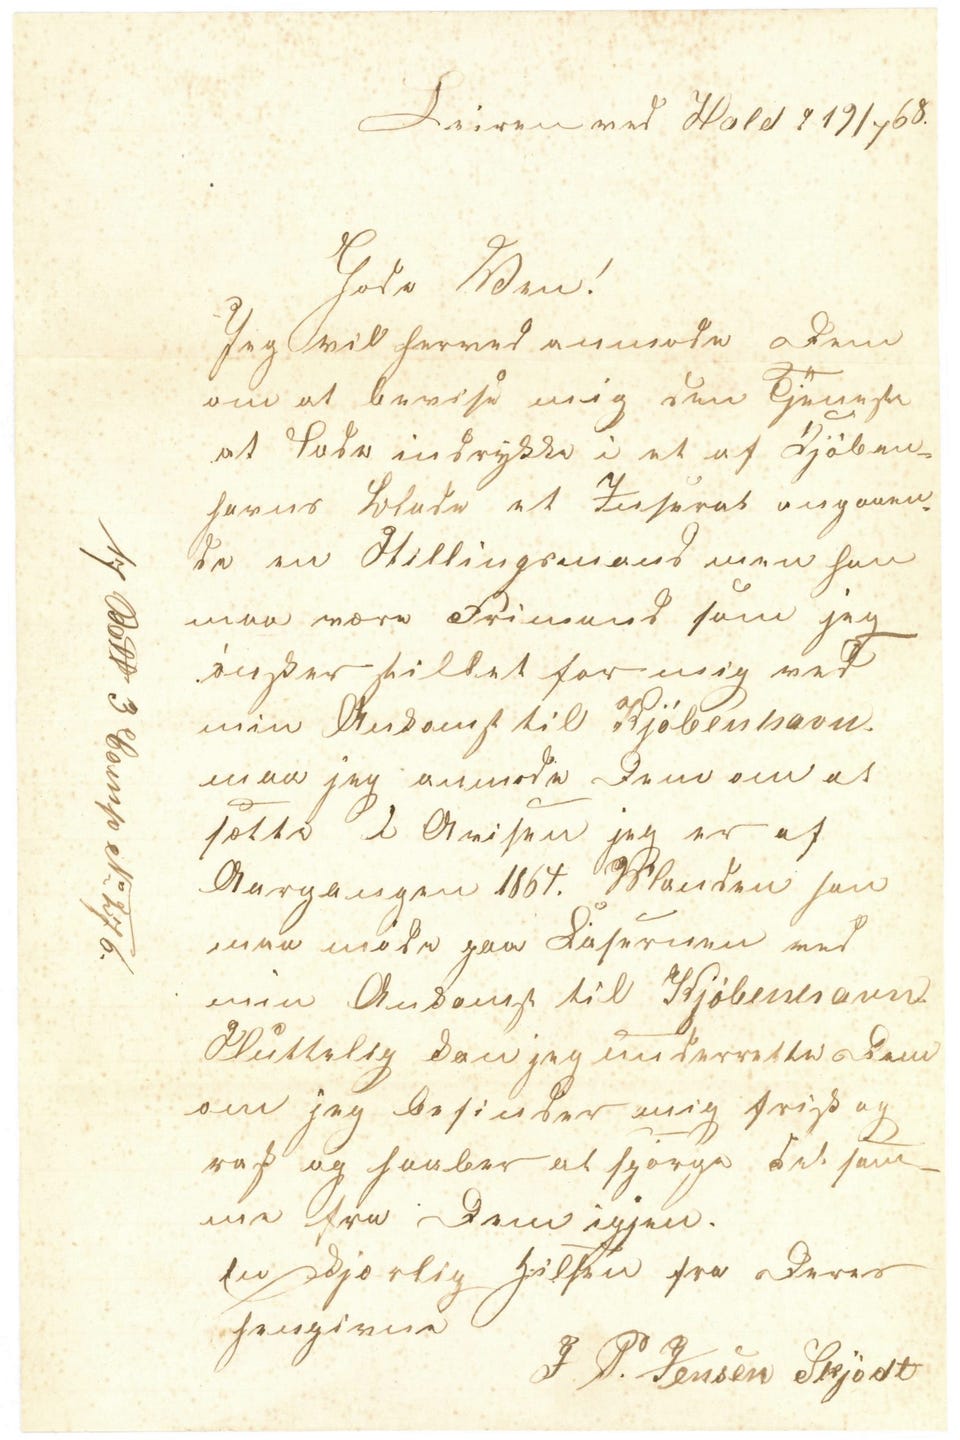 Leiren ved Hald d 19/7 68.
Gode Ven!
Jeg vil herved anmode Dem
om at bevise mig den Tjeneste
at lade indrykke i et af Kjöben-
havns Blade et Inserat angaaen-
de en Stillingsmand men han
maa være Frimand som jeg
ønsker stillet for mig ved
min Ankomst til Kjöbenhavn.
maa jeg anmode Dem om at
sætte i Avisen jeg er af
Aargangen 1864. Manden han
maa möde paa Kasernen ved
min Ankomst til Kjöbenhavn
Sluttelig kan jeg underrette Dem
om jeg befinder mig frisk og
rask og haaber at spørge det sam-
me fra Dem igjen.
En kjærlig Hilsen fra Deres
hengivne
J P. Jensen Skjödt
3 Comp No 276.